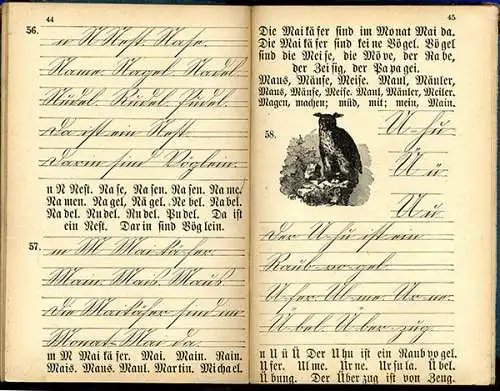 44
56.
n N Nest. Nase.
Name. Nagel. Nadel.
Nudel. Rudel. Pudel.
Da ist ein Nest.
Darin sind Vöglein.
n N Nest. Na se, Na sen. Na sen. Na me.
Na men. Na gel, Nä gel. Ne bel. Na bel.
Na del. Nu del. Ru del. Pu del. Da ist
ein Nest. Dar in sind Vög lein.
57.
m M Mai kä fer.
Main. Mais. Maus.
Die Maikäfer sind im
Monat Mai da.
m M Mai kä fer. Mai. Main. Rain.
Mais. Maus. Maul. Mar tin. Mi cha el.
45
Die Mai kä fer sind im Mo nat Mai da.
Die Mai kä fer sind kei ne Vö gel. Vö gel
sind die Mei se, die Mö ve, der Ra be,
der Zei sig, der Pa pa gei.
Maus, Mäuse, Meise. Maul, Mäuler,
Maus, Mäuse, Meise. Maul, Mäuler, Meiler.
Magen, machen; müd, mit; mein, Main.
58.
U-hu
Ü ü
U u
Der U-hu ist ein
Raub-vo-gel.
U-fer. Ul-me. Ur-ne.
Ü-bel. Ü-ber-zug.
u U ü Ü Der U hu ist ein Raub vo gel.
U fer. Ul me. Ur ne. Ur su la. Ü bel.
Ü bung. Der Über zug ist von Zeug.